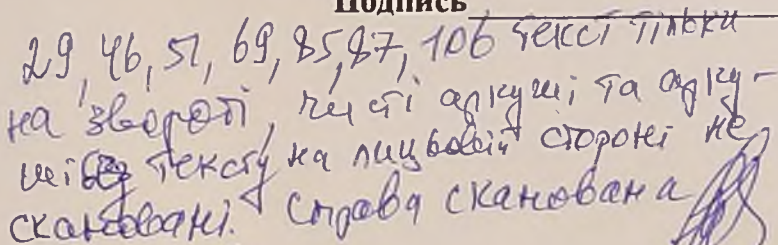 Подпись
29, 46, 51, 69, 85, 87, 106 текст тільки
на звороті, чисті аркуші та арку-
ші без тексту на лицьовій стороні не
скановані. Справа сканована